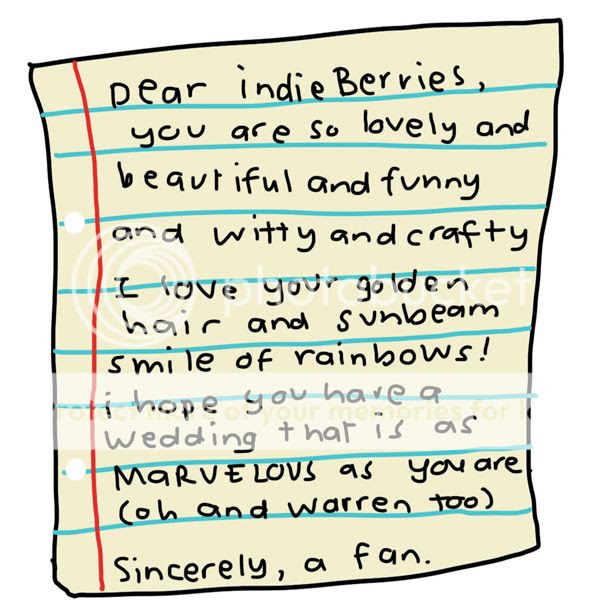 Dear indieBerries,
you are so lovely and
beautiful and funny
and witty and crafty
I love your golden
hair and sunbeam
smile of rainbows!
i hope you have a
wedding that is as
MARVELOUS as you are
(oh and warren too)
Sincerely, a fan.
photobucket
Protect more of your memories for l